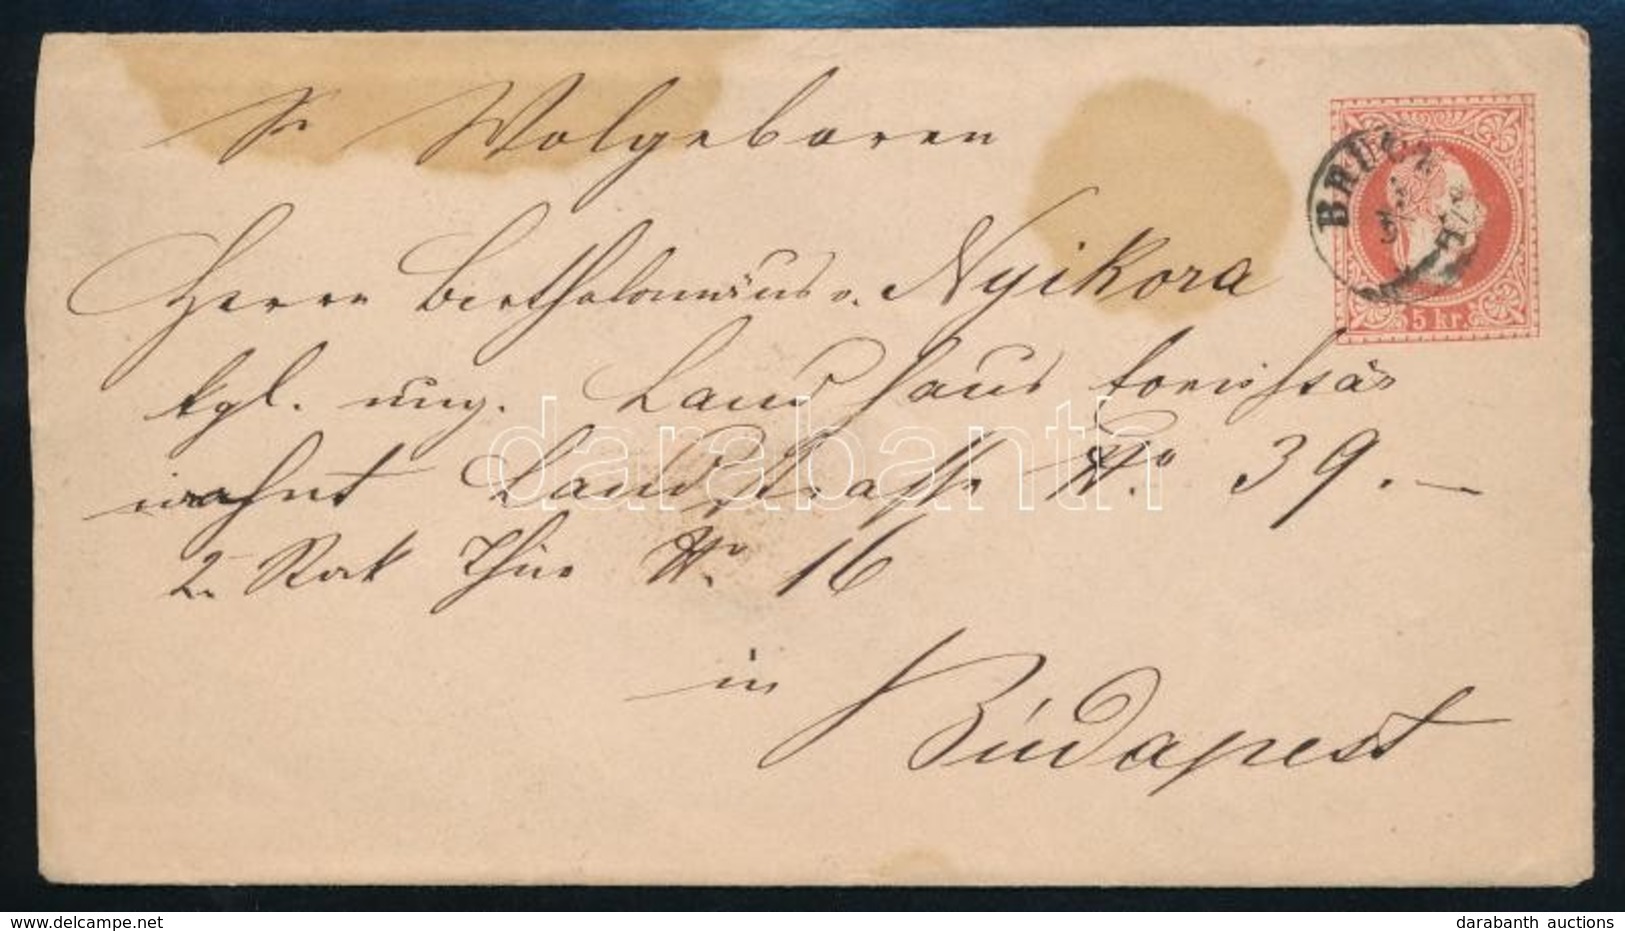 Sr Wolgeboren
BRUCK
Herrn Bertholomäus v. Nyikora
5 kr.
kgl. ung. Landhaus
wohnt Landstrasse No 39.—
2. Stock Thür No 16
in
Budapest
darabanth
www.delcampe.net
darabanth auctions